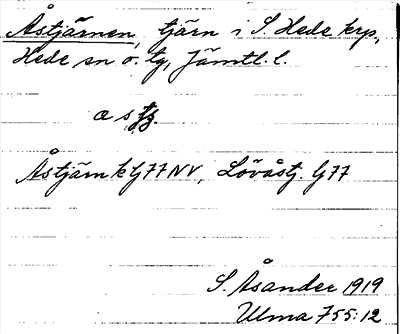 Åstjärnen, tjärn i S. Hede krp.,
Hede sn o. tg, Jämtl. l.
a s tg.
Åstjärn k G77 NV, Lövåstj. G77
S. Åsander 1919
Ulma 755:12